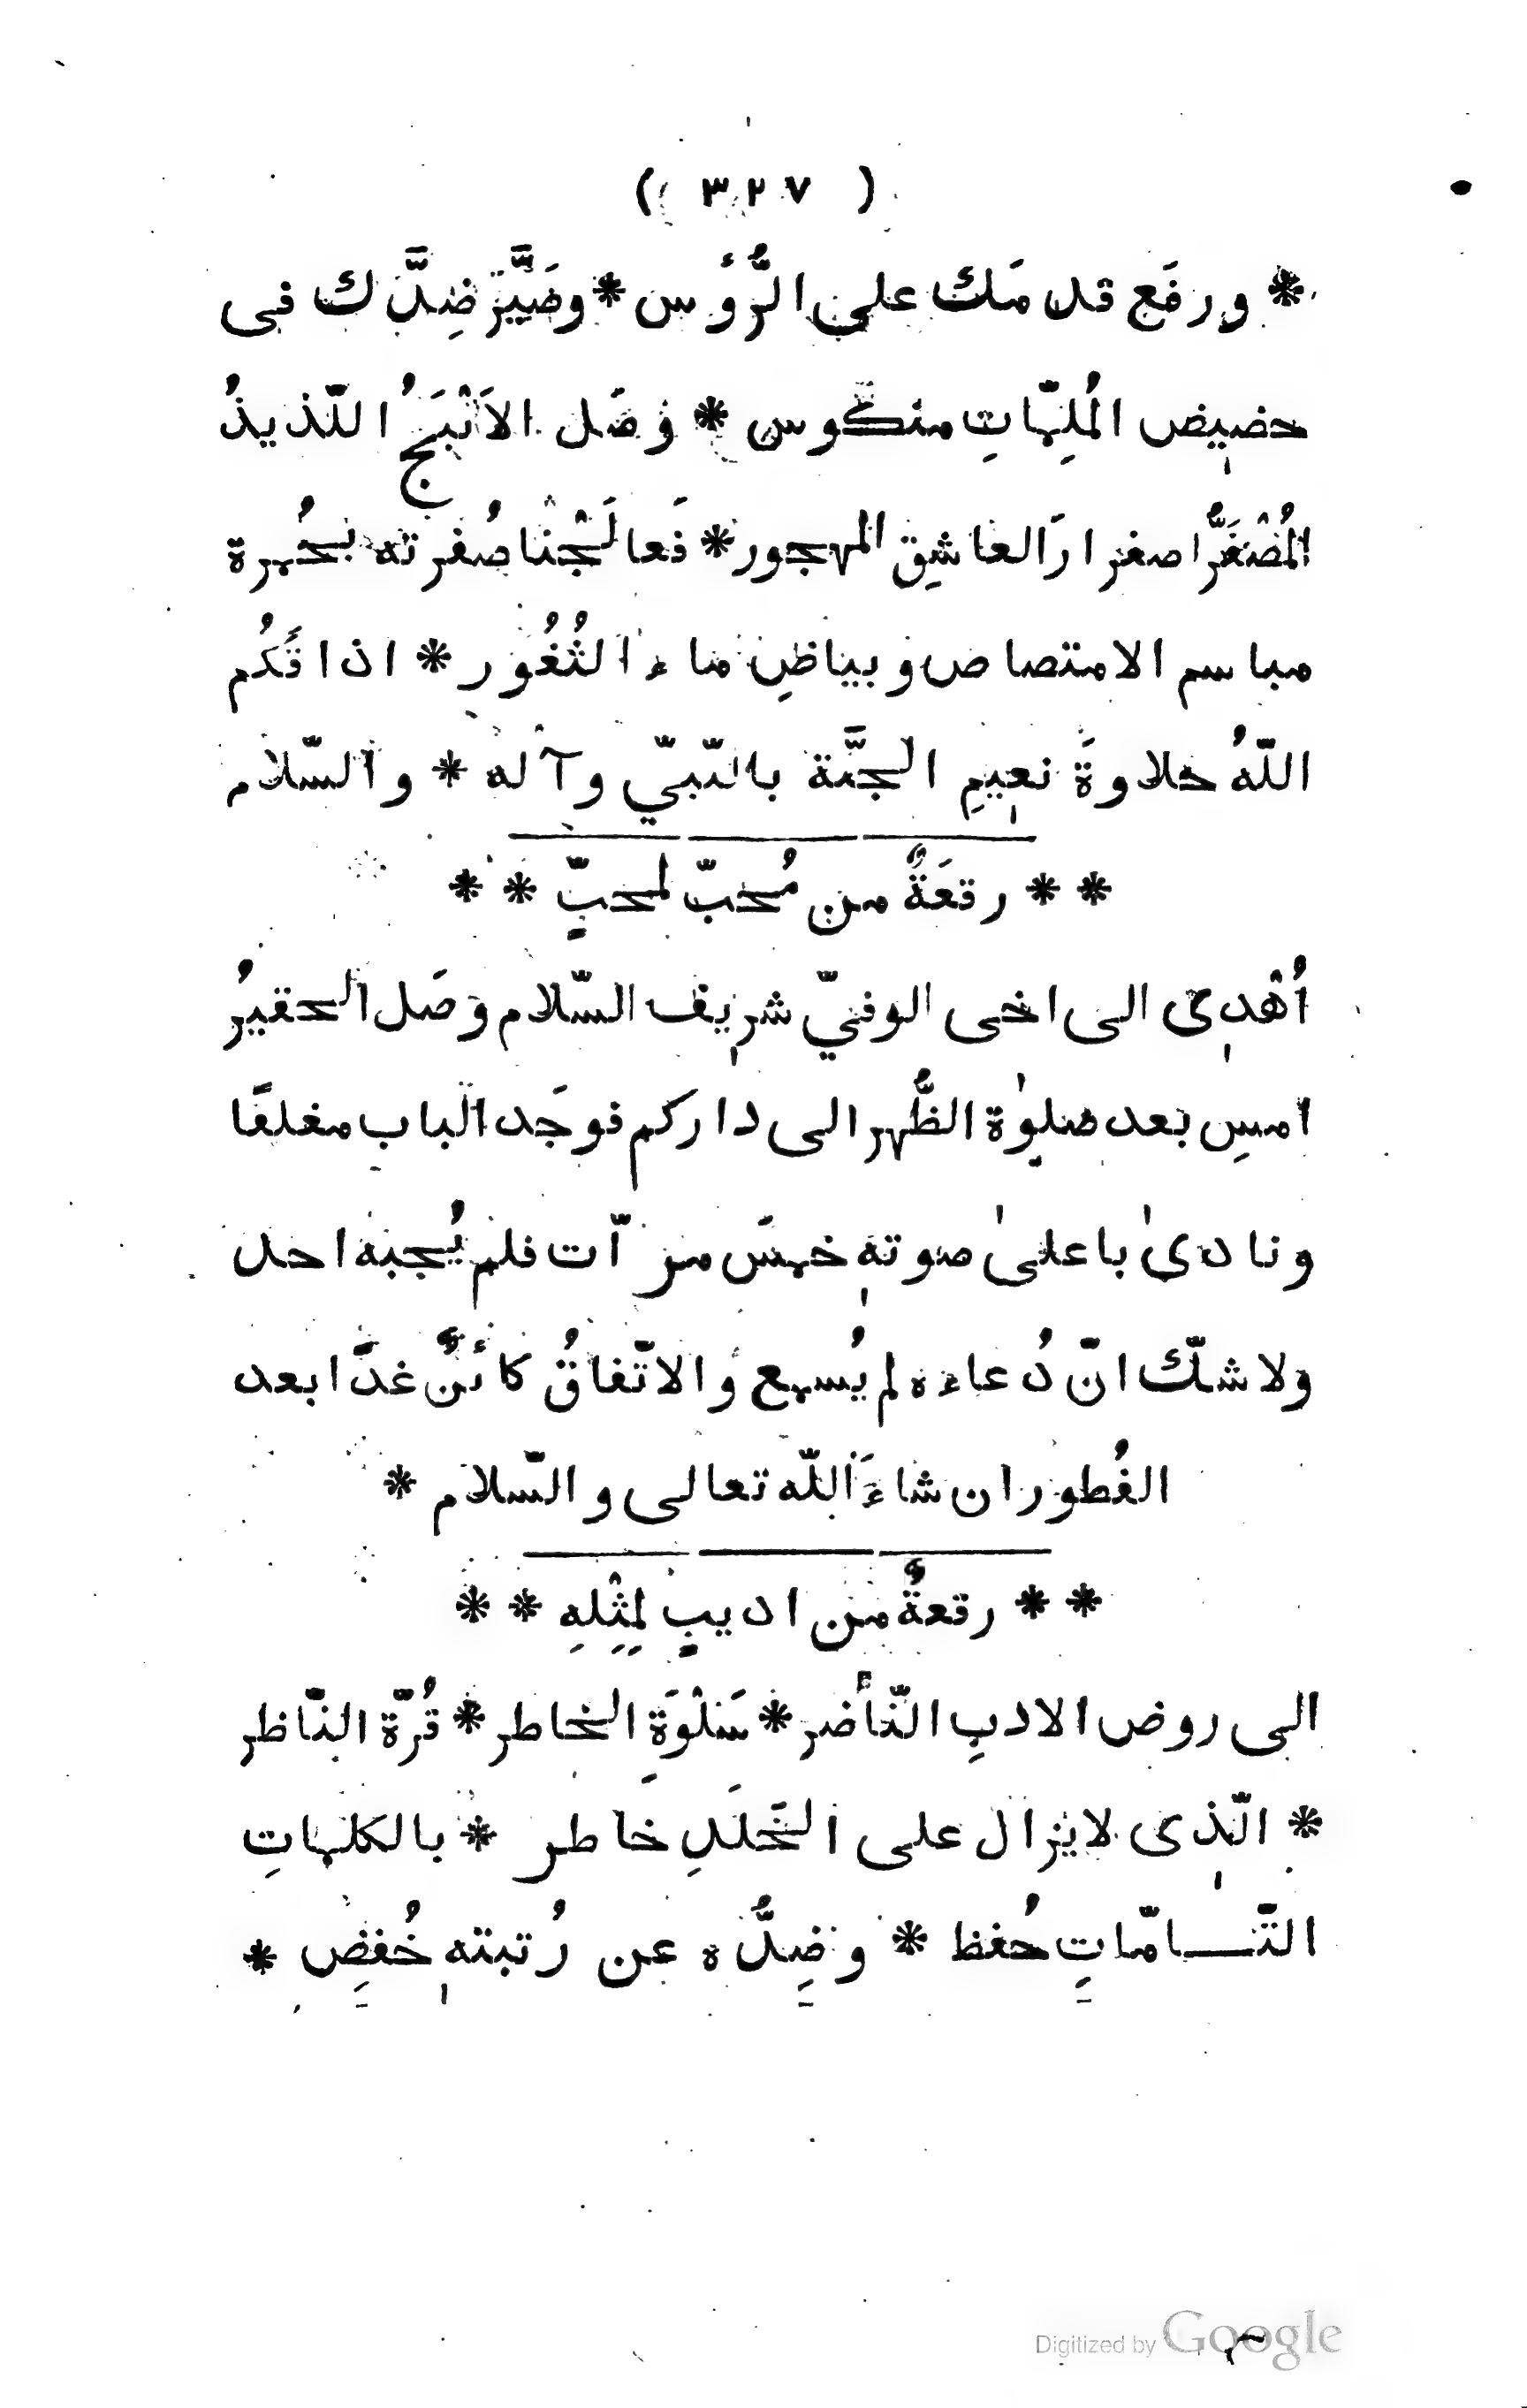 ( ٣٢٧ )
* ورفَع قدمَك على الرُّؤُس * وصَيَّر ضِدَّك فى
حضيض المُلِمّاتِ منكوس * وصَل الاَنْبَجُ اللّذيذُ
المُصْفَرُّ اصفرارَ العاشِق المهجور * فَعالَجْنا صُفرته بحُمرة
مباسم الامتصاص وبياضِ ماء الثُغُور * اذاقَكُم
اللّهُ حلاوةَ نعيمِ الجنَّة بالنّبىّ وآله * والسّلام
* * رقعَةٌ من مُحبّ لمحبٍّ * *
اُهْدِى الى اخى الوفىّ شريف السّلام وصَل الحقيرُ
امسِ بعد صلوٰة الظُّهر الى داركم فوجَد الباب مغلقًا
ونادىٰ باعلىٰ صوتهٖ خمسَ مرّات فلم يُجبه احد
ولا شكّ انّ دُعاءه لم يُسمع والاتّفاقُ كائنٌ غدًا بعد
الفُطور ان شاءَ اللّه تعالى والسّلام *
* * رقعةٌ من اديبٍ لِمِثْلِهِ * *
الى روض الادبِ النّاضر * سَلْوَةِ الخاطر * قُرّة النّاظر
* الّذى لا يزال على الخَلَدِ خاطر * بالكلماتِ
التّامّاتِ حُفظ * وضِدُّه عن رُتبتهٖ خُفِض *
Digitized by Google